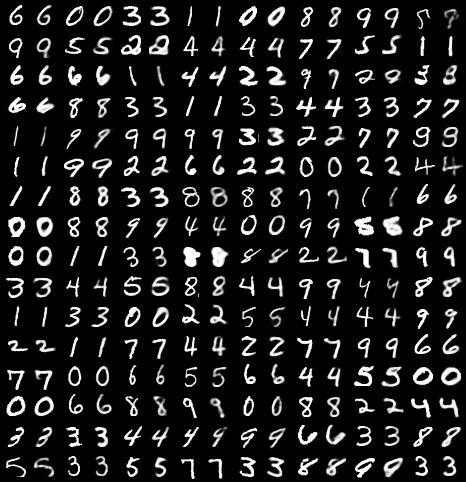 6 6 0 0 3 3 1 1 0 0 8 8 9 9 5
9 9 5 5 2 2 4 4 4 4 7 7 5 5 1 1
6 6 6 6 1 1 4 4 2 2 9 9 2 2 3 3
6 6 8 8 3 3 1 1 3 3 4 4 3 3 7 7
1 1 9 9 9 9 9 9 3 3 2 2 7 7 9 9
1 1 9 9 2 2 6 6 2 2 0 0 2 2 4 4
1 1 8 8 3 3 8 8 8 8 7 7 1 1 6 6
0 0 8 8 9 9 4 4 0 0 9 9 5 5 8 8
0 0 1 1 3 3 8 8 8 8 2 2 7 7 9 9
3 3 4 4 5 5 8 8 4 4 9 9 4 4 8 8
1 1 3 3 0 0 2 2 5 5 4 4 4 4 9 9
2 2 1 1 7 7 4 4 2 2 7 7 9 9 6 6
7 7 0 0 6 6 5 5 6 6 4 4 5 5 0 0
0 0 6 6 8 8 9 9 0 0 8 8 2 2 4 4
3 3 3 3 4 4 4 9 9 9 6 6 3 3 8 8
5 5 3 3 5 5 7 7 3 3 8 8 9 9 3 3